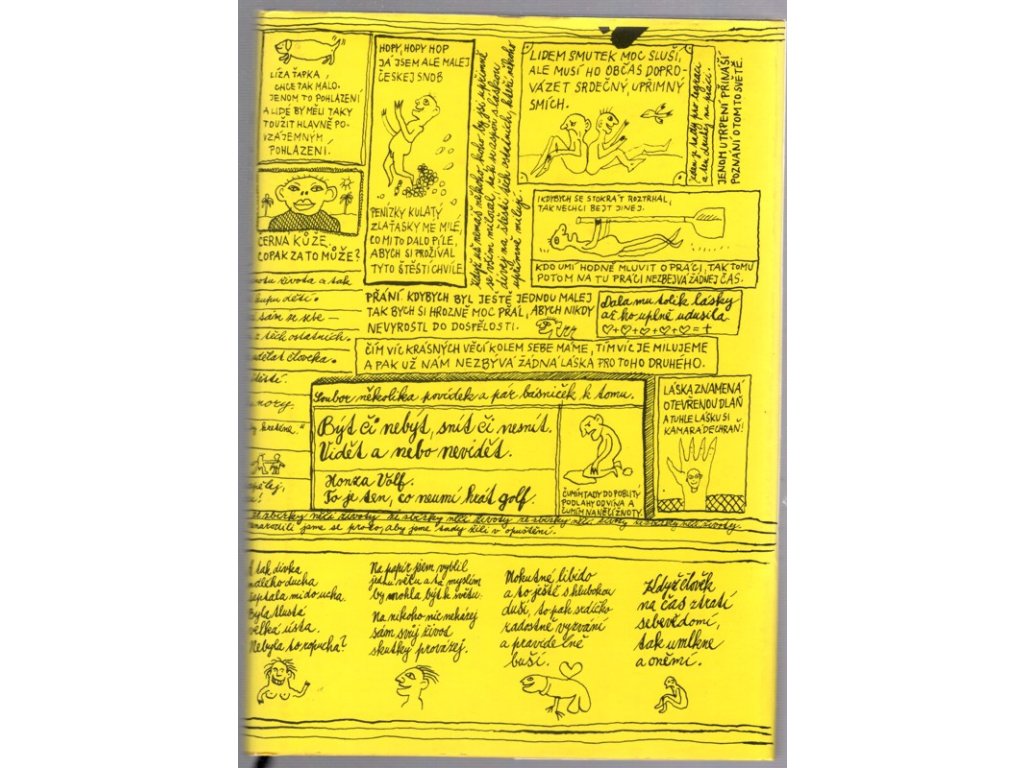 LÍZA ŤAPKA,
CHCE TAK MALO.
JENOM TO POHLAZENÍ
A LIDE BY MĚLI TAKY
TOUŽIT HLAVNĚ PO-
VZÁJEMNÝM
POHLAZENÍ.
HOPY, HOPY HOP
JÁ JSEM ALE MALEJ
ČESKEJ SNOB
PENÍZKY KULATÝ
ZLAŤASKY MÉ MILÉ,
CO MI TO DALO PÍLE,
ABYCH SI PROŽÍVAL
TYTO ŠTĚSTÍ CHVÍLE
Když už nemáš někoho, koho by jsi upřímně
miloval, tak se aspoň s láskou
dívej na štěstí těch ostatních, kteří někoho
upřímně milují.
LIDEM SMUTEK MOC SLUŠÍ,
ALE MUSÍ HO OBČAS DOPRO-
VÁZET SRDEČNÝ, UPŘIMNÝ
SMÍCH.
JENOM UTRPENÍ PŘINÁŠÍ
POZNÁNÍ O TOMTO SVĚTĚ.
ČERNÁ KŮŽE
COPAK ZA TO MŮŽE?
I KDYBYCH SE STOKRÁT ROZTRHAL,
TAK NECHCI BEJT JINEJ.
KDO UMÍ HODNĚ MLUVIT O PRÁCI, TAK TOMU
POTOM NA TU PRÁCI NEZBEJVÁ ŽÁDNEJ ČAS.
PŘÁNÍ. KDYBYCH BYL JEŠTĚ JEDNOU MALEJ
TAK BYCH SI HROZNĚ MOC PŘÁL, ABYCH NIKDY
NEVYROSTL DO DOSPĚLOSTI.
Dala mu tolik lásky
až ho uplně udusila
♡+♡+♡+♡+♡=+
ČÍM VÍC KRÁSNÝCH VĚCÍ KOLEM SEBE MÁME, TÍM VÍC JE MILUJEME
A PAK UŽ NÁM NEZBÝVÁ ŽÁDNÁ LÁSKA PRO TOHO DRUHÉHO.
života a tak
dětí.
sám ze sebe –
z těch ostatních.
udělat člověka.
Soubor několika povídek a pár básniček k tomu.
Být či nebýt, snít či nesnít.
Vidět a nebo nevidět.
Honza Volf.
To je ten, co neumí hrát golf.
ČUMÍM TADY DO POBLITÝ
PODLAHY OD VÍNA A
ČUMÍM NA NĚČÍ ŽIVOTY.
LÁSKA ZNAMENÁ
OTEVŘENOU DLAŇ
A TUHLE LÁSKU SI
KAMARÁDE CHRAŇ!
narodili jsme se proto, aby jsme tady žili v opuštění.
A tak dívka
malého ducha
šeptala mi do ucha.
Byla tlustá
velká ústa.
Nebyla to ropucha?
Na papír jsem vyblil
jednu větu a ta myslím
by mohla být k světu.
Na nikoho nic neházej
sám svůj život
skutky provázej.
Mohutné libido
a to ještě s hlubokou
duší, to pak srdíčko
radostně vyzvání
a pravidelně
buší.
Když člověk
na čas ztratí
sebevědomí,
tak umlkne
a oněmí.